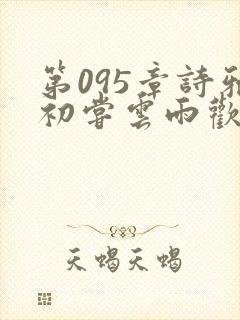 第095章詩雅
初嘗雲雨歡
天蝎天蝎